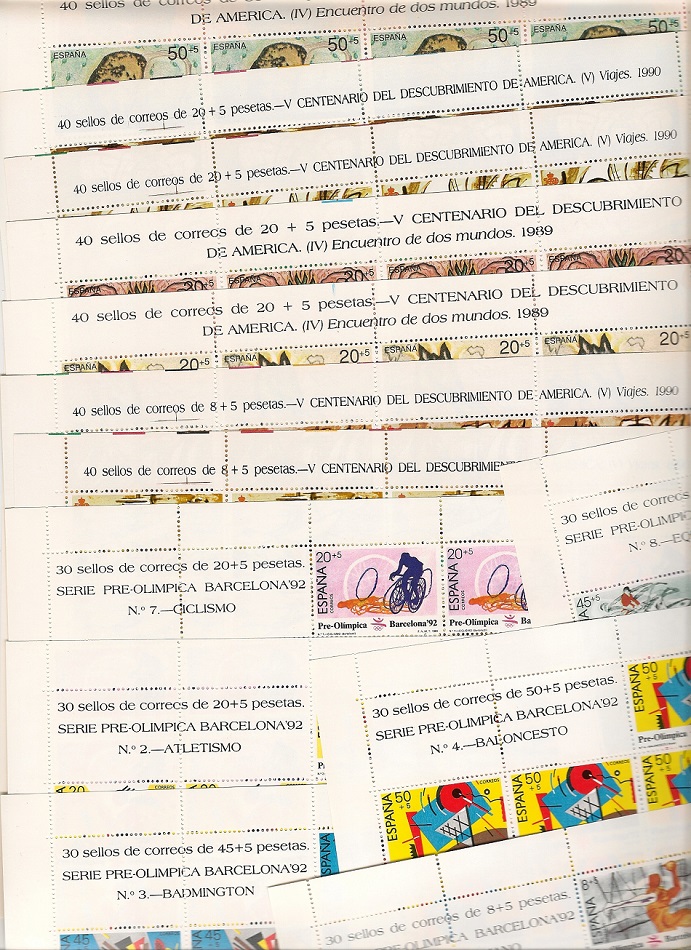 40 sellos de correos de 50 + 5 pesetas.—V CENTENARIO DEL DESCUBRIMIENTO
DE AMERICA. (IV) Encuentro de dos mundos. 1989
ESPAÑA 50+5 ESPAÑA 50+5 ESPAÑA 50+5 ESPAÑA 50+5
40 sellos de correos de 20 + 5 pesetas.—V CENTENARIO DEL DESCUBRIMIENTO DE AMERICA. (V) Viajes. 1990
40 sellos de correos de 20 + 5 pesetas.—V CENTENARIO DEL DESCUBRIMIENTO DE AMERICA. (V) Viajes. 1990
40 sellos de correos de 20 + 5 pesetas.—V CENTENARIO DEL DESCUBRIMIENTO
DE AMERICA. (IV) Encuentro de dos mundos. 1989
ESPAÑA 20+5 ESPAÑA 20+5 ESPAÑA 20+5 ESPAÑA 20+5
40 sellos de correos de 20 + 5 pesetas.—V CENTENARIO DEL DESCUBRIMIENTO
DE AMERICA. (IV) Encuentro de dos mundos. 1989
ESPAÑA 20+5 ESPAÑA 20+5 ESPAÑA 20+5 ESPAÑA 20+5
40 sellos de correos de 8 + 5 pesetas.—V CENTENARIO DEL DESCUBRIMIENTO DE AMERICA. (V) Viajes. 1990
40 sellos de correos de 8 + 5 pesetas.—V CENTENARIO DEL DESCUBRIMIE
30 sellos de correos
SERIE PRE-OLIMPICA
N.º 8.—EQ
45+5
30 sellos de correos de 20+5 pesetas.
SERIE PRE-OLIMPICA BARCELONA'92
N.º 7.—CICLISMO
20+5 ESPAÑA CORREOS
Pre-Olímpica Barcelona'92
20+5 ESPAÑA CORREOS
Pre-Olímpica Ba
30 sellos de correos de 20+5 pesetas.
SERIE PRE-OLIMPICA BARCELONA'92
N.º 2.—ATLETISMO
20 ESPAÑA
30 sellos de correos de 50+5 pesetas.
SERIE PRE-OLIMPICA BARCELONA'92
N.º 4.—BALONCESTO
50+5 ESPAÑA
Pre-Olímpica
50+5 ESPAÑA CORREOS
50+5 ESPAÑA CORREOS
50+5 ESPAÑA
30 sellos de correos de 45+5 pesetas.
SERIE PRE-OLIMPICA BARCELONA'92
N.º 3.—BADMINGTON
45 45
30 sellos de correos de 8+5 pesetas.
SERIE PRE-OLIMPICA BARCELONA'92
8+5 ESPAÑA